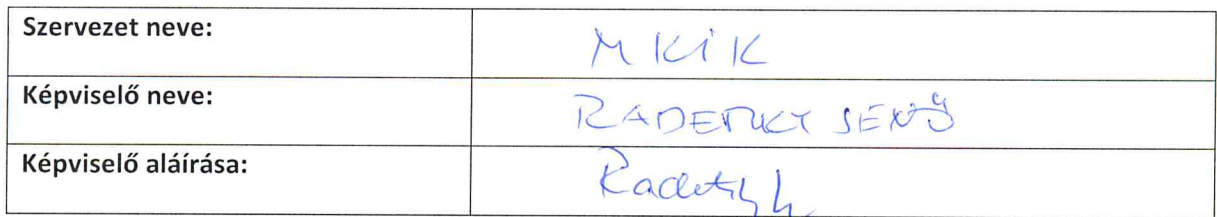 Szervezet neve: MKIK
Képviselő neve: RADETZKY JENŐ
Képviselő aláírása: